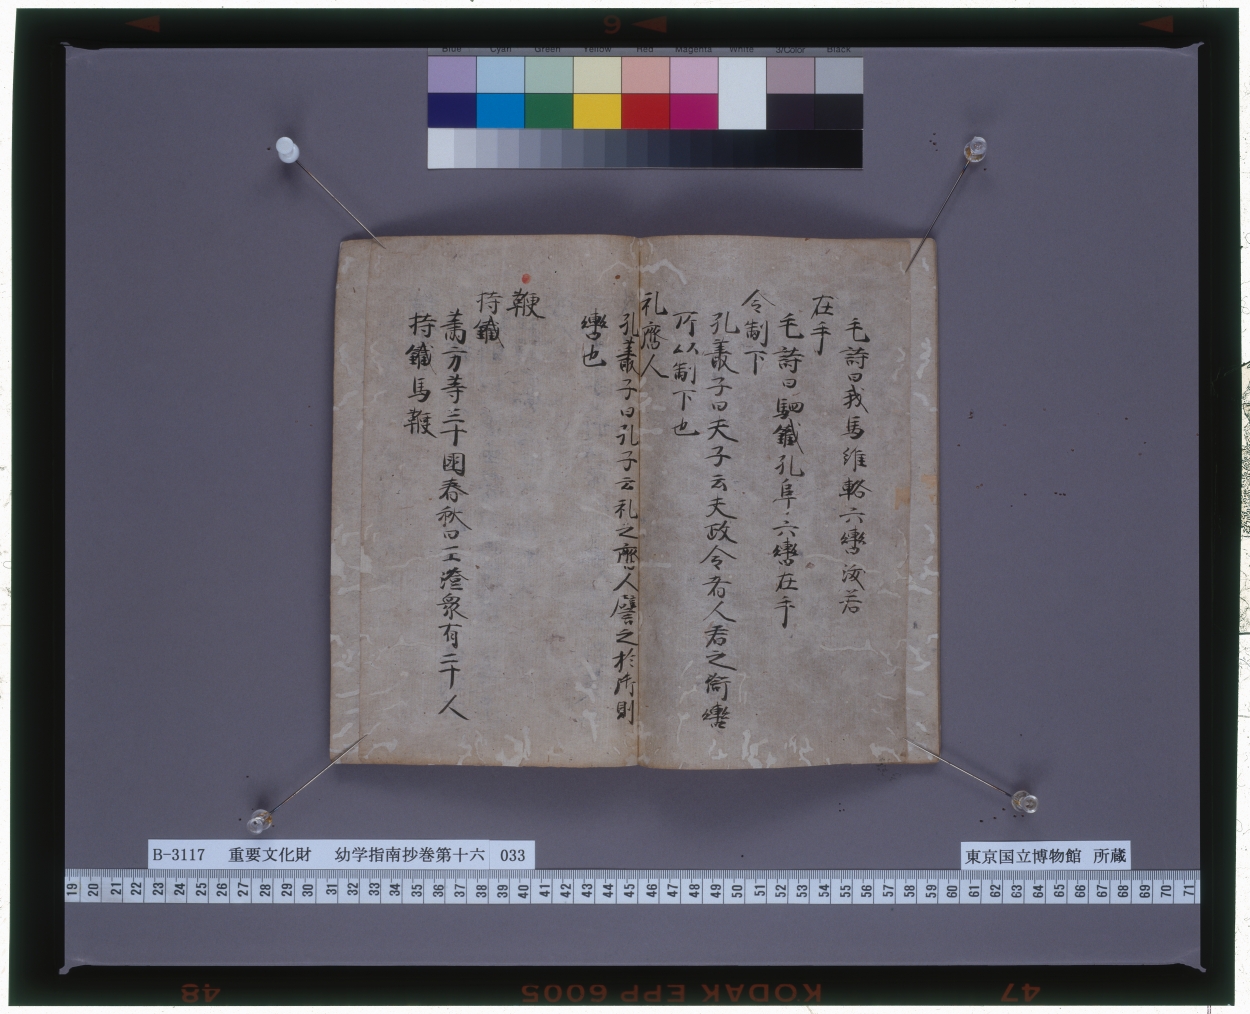 毛詩曰我馬維駱六轡沃若
在手
毛詩曰駟鐵孔阜六轡在手
令制下
孔叢子曰夫子云夫政令者人君之銜轡
所以制下也
礼齊人
孔叢子曰孔子云礼之齊人譬之於御則
轡也
鞭
持鐵
蕭方等三十国春秋曰王澄衆有二十人
持鐵馬鞭
B-3117 重要文化財 幼学指南抄巻第十六 033
東京国立博物館 所蔵
Blue Cyan Green Yellow Red Magenta White 3/Color Black
19 20 21 22 23 24 25 26 27 28 29 30 31 32 33 34 35 36 37 38 39 40 41 42 43 44 45 46 47 48 49 50 51 52 53 54 55 56 57 58 59 60 61 62 63 64 65 66 67 68 69 70 71
6
48
KODAK EPP 6005
47